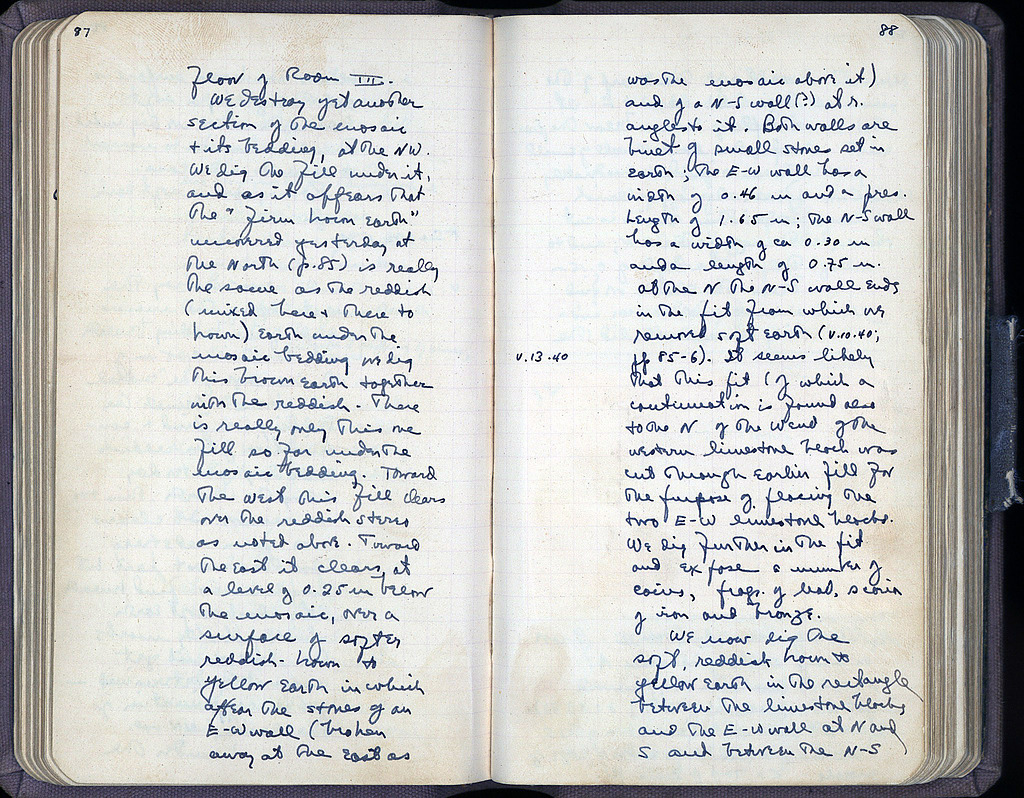 87
Floor of Room III.
We destroy yet another
section of the mosaic
+ its bedding, at the NW.
We dig the fill under it,
and as it appears that
the "firm brown earth"
uncovered yesterday at
the North (p. 85) is really
the same as the reddish
(mixed here + there to
brown) earth under the
mosaic bedding we dig
this brown earth together
with the reddish. There
is really only this one
fill so far under the
mosaic bedding. Toward
the west this fill clears
over the reddish stereo
as noted above. Toward
the east it clears, at
a level of 0.25 m below
the mosaic, over a
surface of softer
reddish-brown to
yellow earth in which
appear the stones of an
E-W wall (broken
away at the East as
88
was the mosaic above it)
and of a N-S wall (?) at r.
angles to it. Both walls are
built of small stones set in
earth; the E-W wall has a
width of 0.46 m and a pres.
length of 1.65 m; the N-S wall
has a width of ca 0.30 m
and a length of 0.75 m.
At the N the N-S wall ends
in the pit from which we
removed soft earth (V.10.40;
V.13.40
pp 85-6). It seems likely
that this pit (of which a
continuation is found also
to the N of the W end of the
western limestone block was
cut through earlier fill for
the purpose of placing the
two E-W limestone blocks.
We dig further in the pit
and expose a number of
coins, frags. of lead, scoria
of iron and bronze.
We now dig the
soft, reddish brown to
yellow earth in the rectangle
between the limestone blocks
and the E-W wall at N and
S and between the N-S